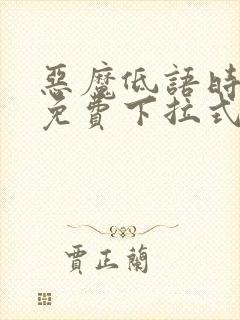 惡魔低語時
免費下拉式
賈正蘭